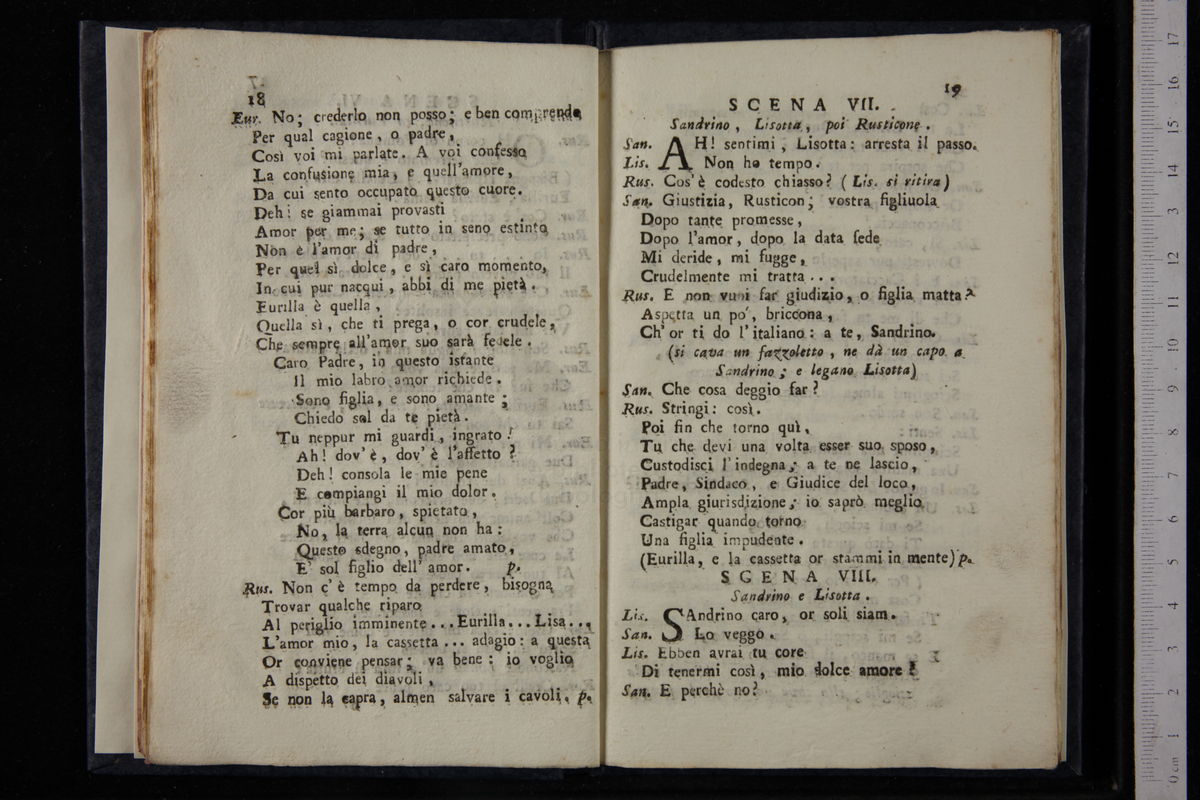 18
Eur. No; crederlo non posso; e ben comprendo
Per qual cagione, o padre,
Così voi mi parlate. A voi confesso
La confusione mia, e quell'amore,
Da cui sento occupato questo cuore.
Deh! se giammai provasti
Amor per me; se tutto in seno estinto
Non è l'amor di padre,
Per quel sì dolce, e sì caro momento,
In cui pur nacqui, abbi di me pietà.
Eurilla è quella,
Quella sì, che ti prega, o cor crudele,
Che sempre all'amor suo sarà fedele.
Caro Padre, in questo istante
Il mio labro amor richiede.
Sono figlia, e sono amante;
Chiedo sol da te pietà.
Tu neppur mi guardi, ingrato!
Ah! dov'è, dov'è l'affetto?
Deh! consola le mie pene
E compiangi il mio dolor.
Cor più barbaro, spietato,
No, la terra alcun non ha:
Questo sdegno, padre amato,
E' sol figlio dell'amor. p.
Rus. Non c'è tempo da perdere, bisogna
Trovar qualche riparo
Al periglio imminente... Eurilla... Lisa...
L'amor mio, la cassetta... adagio: a questa
Or conviene pensar; va bene: io voglio
A dispetto dei diavoli,
Se non la capra, almen salvare i cavoli. p.
19
SCENA VII.
Sandrino, Lisotta, poi Rusticone.
San. AH! sentimi, Lisotta: arresta il passo.
Lis. Non ho tempo.
Rus. Cos'è codesto chiasso? (Lis. si ritira)
San. Giustizia, Rusticon; vostra figliuola
Dopo tante promesse,
Dopo l'amor, dopo la data fede
Mi deride, mi fugge,
Crudelmente mi tratta...
Rus. E non vuoi far giudizio, o figlia matta?
Aspetta un po', briccona,
Ch'or ti do l'italiano: a te, Sandrino.
(si cava un fazzoletto, ne dà un capo a
Sandrino; e legano Lisotta)
San. Che cosa deggio far?
Rus. Stringi: così.
Poi fin che torno quì,
Tu che devi una volta esser suo sposo,
Custodisci l'indegna; a te ne lascio,
Padre, Sindaco, e Giudice del loco,
Ampla giurisdizione; io saprò meglio
Castigar quando torno
Una figlia impudente.
(Eurilla, e la cassetta or stammi in mente) p.
SCENA VIII.
Sandrino e Lisotta.
Lis. SAndrino caro, or soli siam.
San. Lo veggo.
Lis. Ebben avrai tu core
Di tenermi così, mio dolce amore?
San. E perchè no?